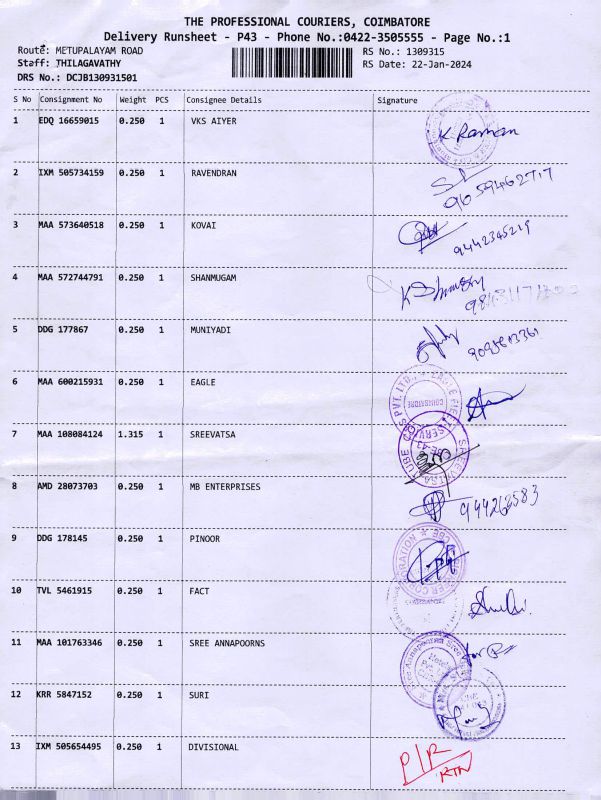 THE PROFESSIONAL COURIERS, COIMBATORE
Delivery Runsheet - P43 - Phone No.:0422-3505555 - Page No.:1
Route: METUPALAYAM ROAD RS No.: 1309315
Staff: THILAGAVATHY RS Date: 22-Jan-2024
DRS No.: DCJB130931501
S No Consignment No Weight PCS Consignee Details Signature
1 EDQ 16659015 0.250 1 VKS AIYER K Raman
2 IXM 505734159 0.250 1 RAVENDRAN
9659462717
3 MAA 573640518 0.250 1 KOVAI
9442345219
4 MAA 572744791 0.250 1 SHANMUGAM
5 DDG 177867 0.250 1 MUNIYADI
6 MAA 600215931 0.250 1 EAGLE
COIMBATORE
7 MAA 108084124 1.315 1 SREEVATSA
8 AMD 28073703 0.250 1 MB ENTERPRISES
944268583
9 DDG 178145 0.250 1 PINOOR
10 TVL 5461915 0.250 1 FACT
11 MAA 101763346 0.250 1 SREE ANNAPOORNS
12 KRR 5847152 0.250 1 SURI
13 IXM 505654495 0.250 1 DIVISIONAL P/R
RTN